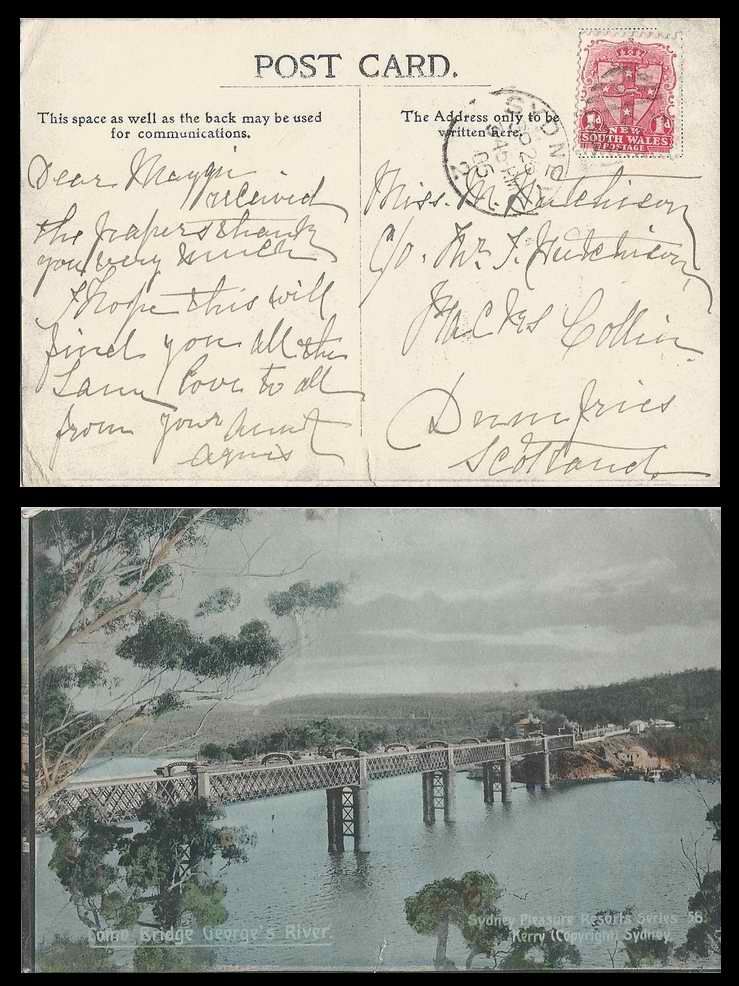 POST CARD.
This space as well as the back may be used
for communications.
The Address only to be
written here.
SYDNEY
2
1d 1d
NEW
SOUTH WALES
POSTAGE
Dear Maggie
received
the papers thank
you very much
I hope this will
find you all the
same love to all
from your Aunt
Agnes
Miss. M. Hutchison
C/o. Mr. J. Hutchison,
Collin
Dumfries
Scotland.
Como Bridge George's River.
Sydney Pleasure Resorts Series 56.
Kerry (Copyright) Sydney.